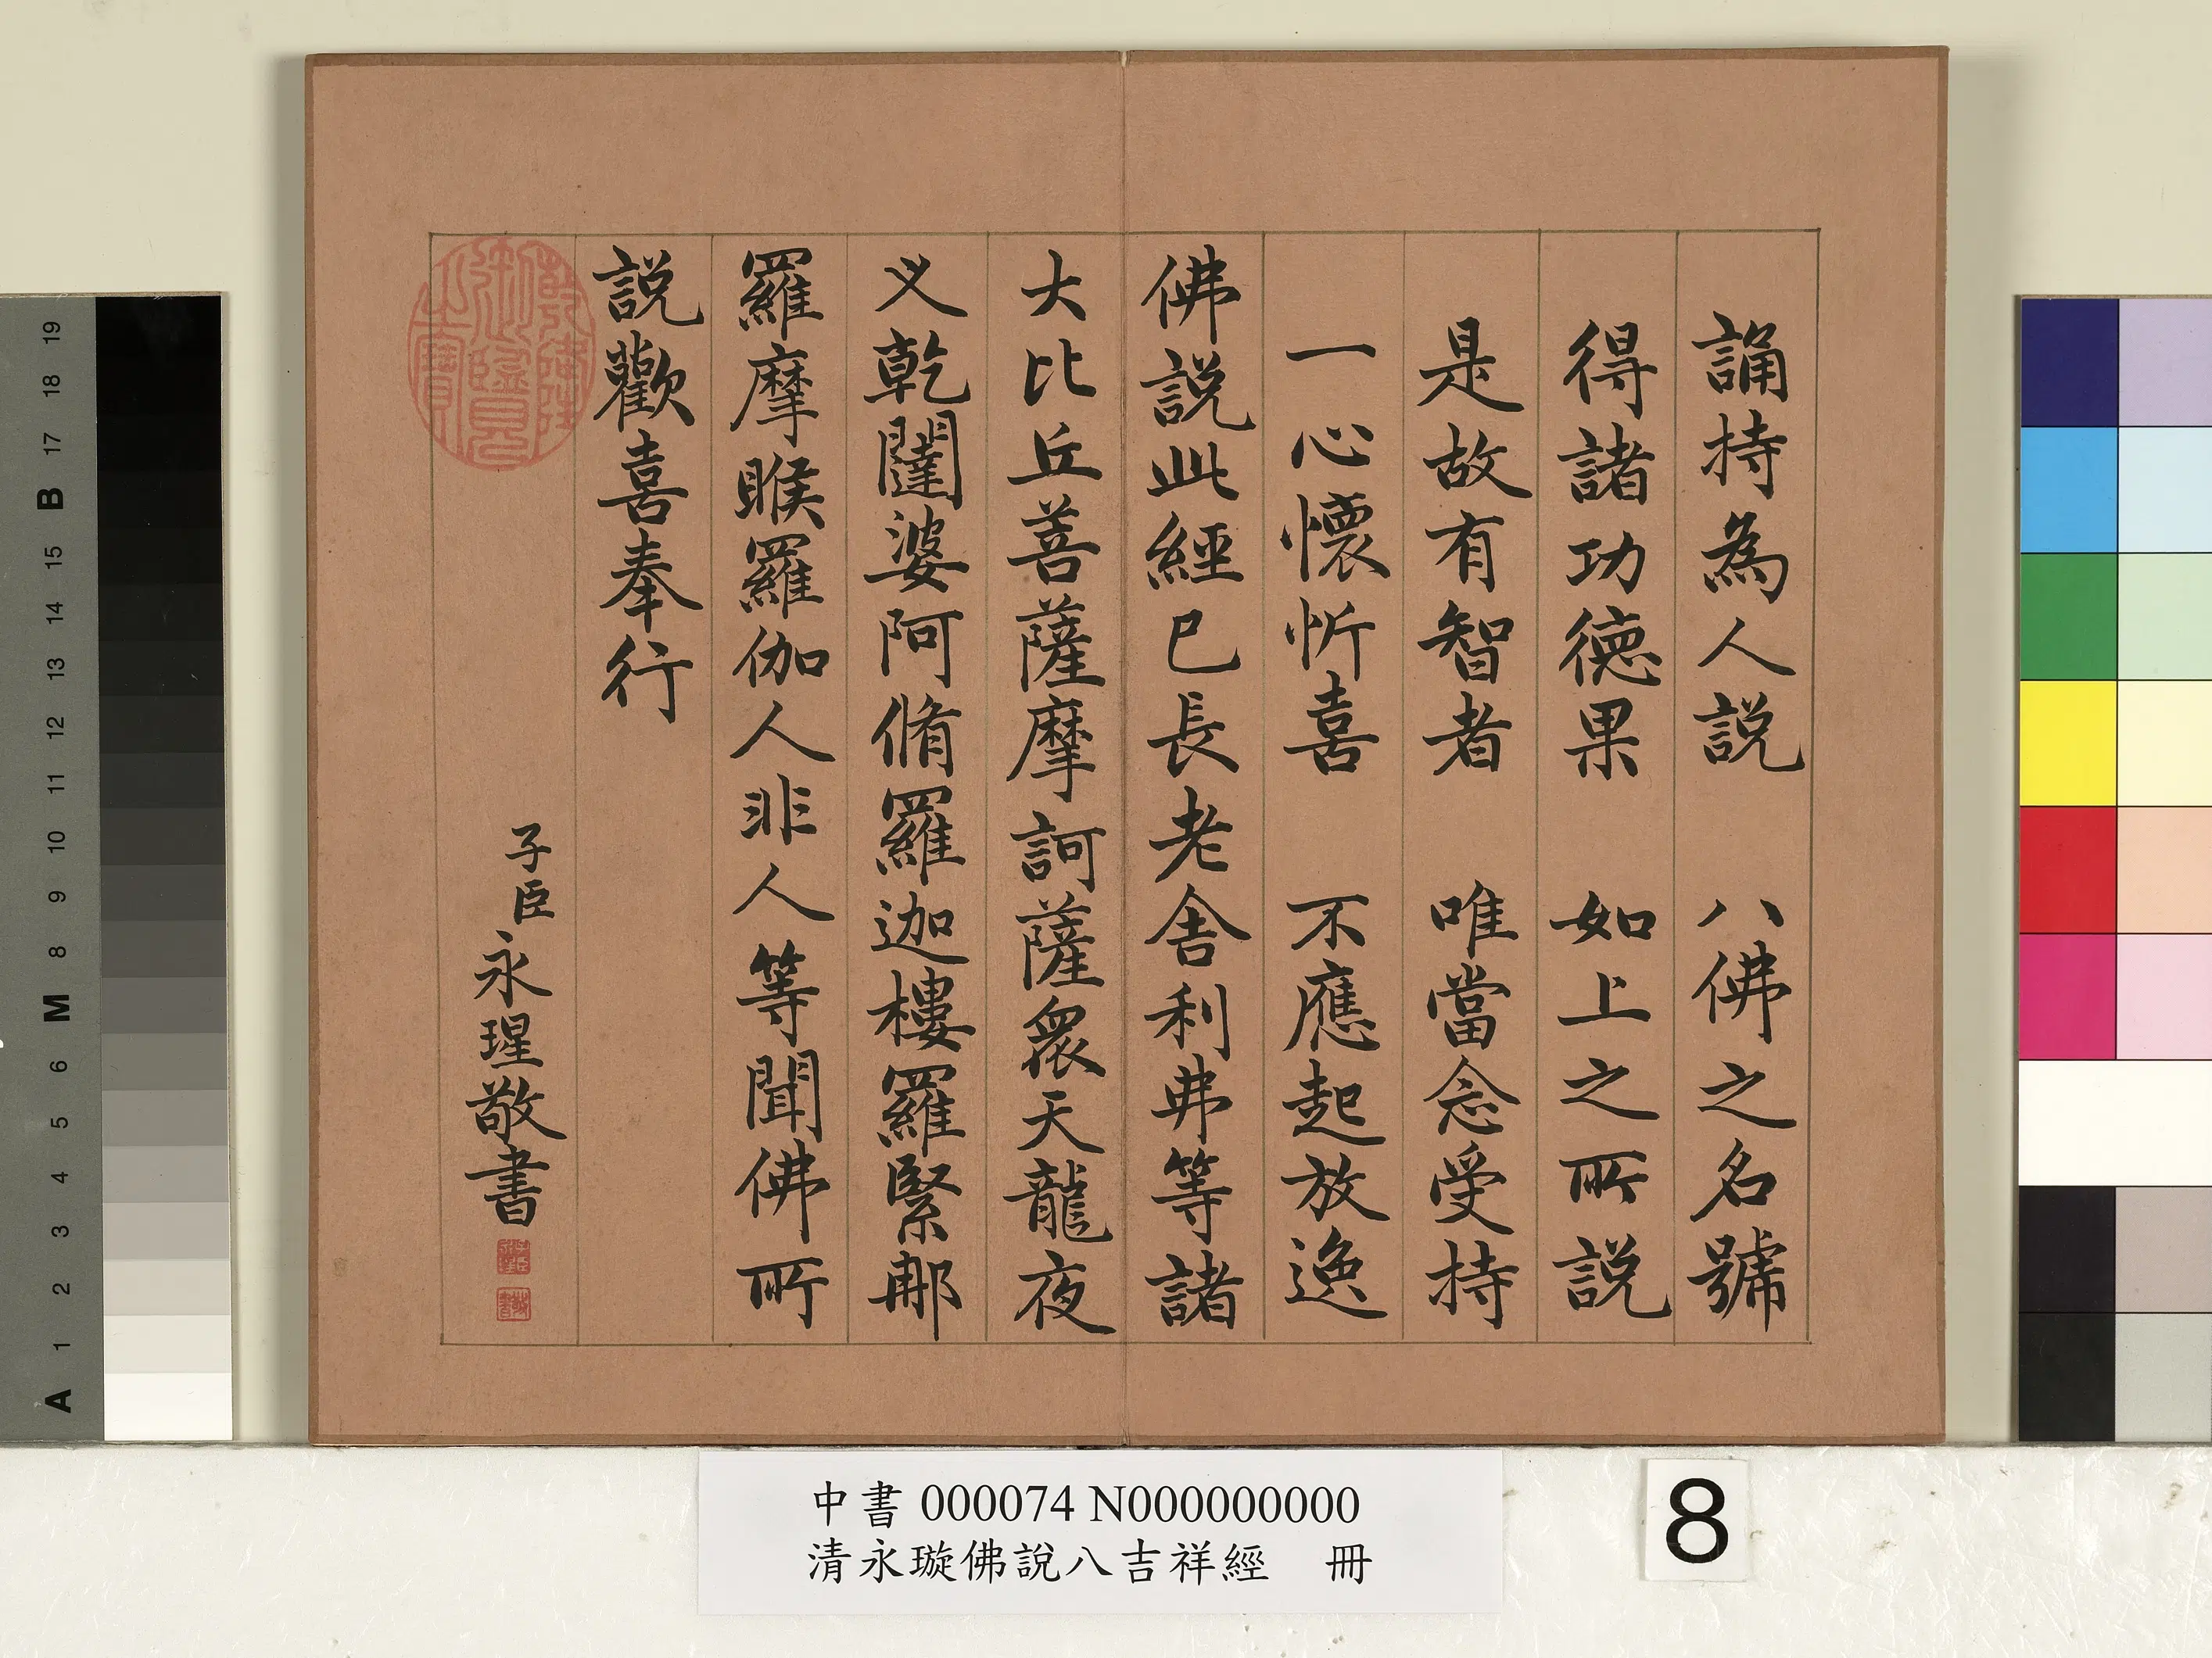 誦持為人説　八佛之名號
得諸功德果　如上之所説
是故有智者　唯當念受持
一心懷忻喜　不應起放逸
佛説此經已長老舍利弗等諸
大比丘菩薩摩訶薩衆天龍夜
义乾闥婆阿脩羅迦樓羅緊那
羅摩睺羅伽人非人等聞佛所
説歡喜奉行
子臣永瑆敬書
乾隆御覽之寶
中書 000074 N000000000
清永璇佛說八吉祥經　冊
8
19
18
17
B
15
14
13
12
11
10
9
8
M
6
5
4
3
2
1
A